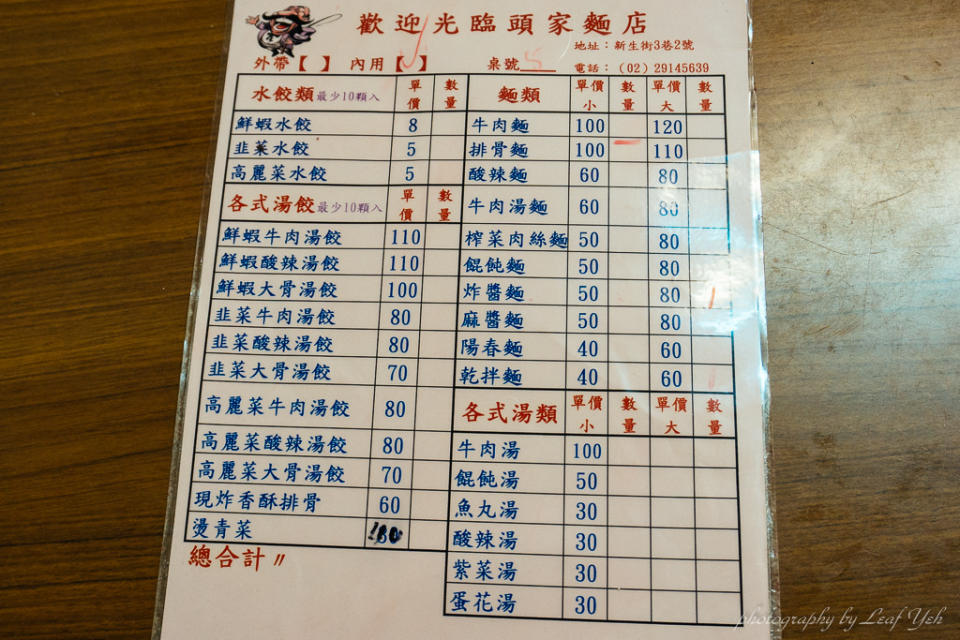 歡迎光臨頭家麵店
地址：新生街3巷2號
外帶【 】 內用【✓】 桌號 5 電話：（02）29145639
水餃類 最少10顆入 單價 數量
鮮蝦水餃 8
韭菜水餃 5
高麗菜水餃 5
各式湯餃 最少10顆入 單價 數量
鮮蝦牛肉湯餃 110
鮮蝦酸辣湯餃 110
鮮蝦大骨湯餃 100
韭菜牛肉湯餃 80
韭菜酸辣湯餃 80
韭菜大骨湯餃 70
高麗菜牛肉湯餃 80
高麗菜酸辣湯餃 80
高麗菜大骨湯餃 70
現炸香酥排骨 60
燙青菜
總合計〃
麵類 單價小 數量 單價大 數量
牛肉麵 100 120
排骨麵 100 110
酸辣麵 60 80
牛肉湯麵 60 80
榨菜肉絲麵 50 80
餛飩麵 50 80
炸醬麵 50 80 1
麻醬麵 50 80
陽春麵 40 60
乾拌麵 40 60 1
各式湯類 單價小 數量 單價大 數量
牛肉湯 100
餛飩湯 50
魚丸湯 30
酸辣湯 30
紫菜湯 30
蛋花湯 30
photography by Leaf Yeh